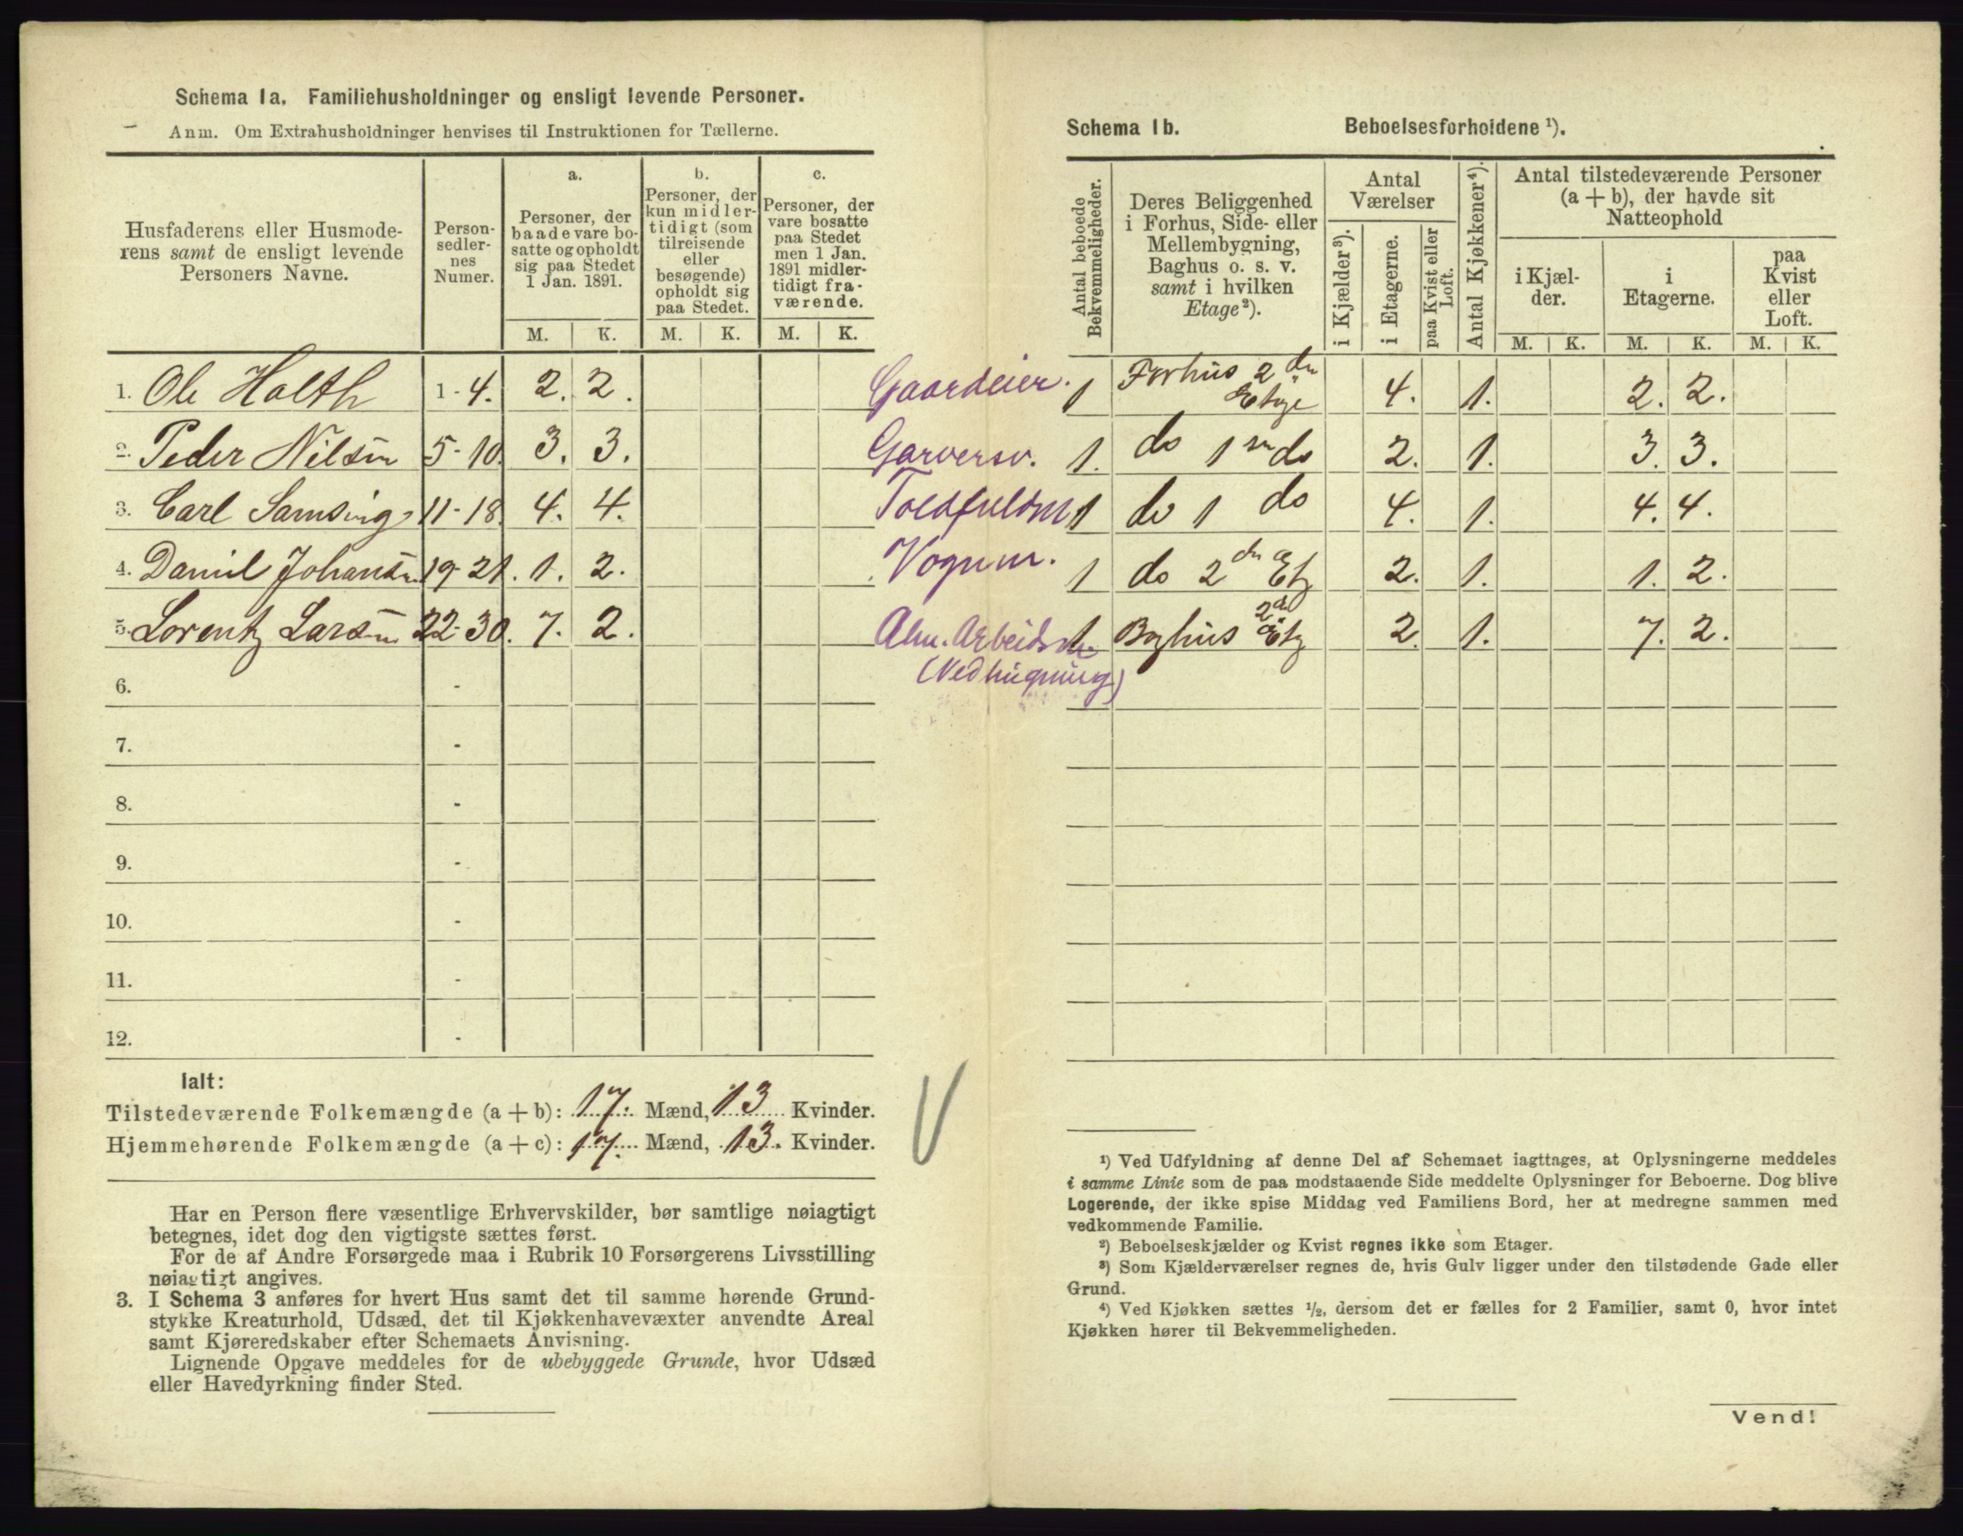 Schema 1a. Familiehusholdninger og ensligt levende Personer.
Anm. Om Extrahusholdninger henvises til Instruktionen for Tællerne.
Husfaderens eller Husmoderens samt de ensligt levende Personers Navne.
Personsedlernes Numer.
a. Personer, der baade vare bosatte og opholdt sig paa Stedet 1 Jan. 1891.
b. Personer, der kun midlertidigt (som tilreisende eller besøgende) opholdt sig paa Stedet.
c. Personer, der vare bosatte paa Stedet men 1 Jan. 1891 midlertidigt fraværende.
M. K. M. K. M. K.
1. Ole Holth 1-4. 2. 2.
2. Peder Nilsen 5-10. 3. 3.
3. Carl Samsing 11-18. 4. 4.
4. Daniel Johansen 19-21. 1. 2.
5. Lorentz Larsen 22-30. 7. 2.
6. -
7. -
8. -
9. -
10. -
11. -
12. -
Ialt:
Tilstedeværende Folkemængde (a + b): 17. Mænd, 13 Kvinder.
Hjemmehørende Folkemængde (a + c): 17. Mænd, 13. Kvinder.
Har en Person flere væsentlige Erhvervskilder, bør samtlige nøiagtigt
betegnes, idet dog den vigtigste sættes først.
For de af Andre Forsørgede maa i Rubrik 10 Forsørgerens Livsstilling
nøiagtigt angives.
3. I Schema 3 anføres for hvert Hus samt det til samme hørende Grund-
stykke Kreaturhold, Udsæd, det til Kjøkkenhavevæxter anvendte Areal
samt Kjøreredskaber efter Schemaets Anvisning.
Lignende Opgave meddeles for de ubebyggede Grunde, hvor Udsæd
eller Havedyrkning finder Sted.
Schema 1b. Beboelsesforholdene ¹).
Antal beboede Bekvemmeligheder.
Deres Beliggenhed i Forhus, Side- eller Mellembygning, Baghus o. s. v. samt i hvilken Etage ²).
Antal Værelser
i Kjælder ³).
i Etagerne.
paa Kvist eller Loft.
Antal Kjøkkener ⁴).
Antal tilstedeværende Personer (a + b), der havde sit Natteophold
i Kjælder.
i Etagerne.
paa Kvist eller Loft.
M. K. M. K. M. K.
Gaardeier. 1 Forhus 2den Etage 4. 1. 2. 2.
Garversv. 1. do 1ste do 2. 1. 3. 3.
Toldfuldm 1 do 1 do 4. 1. 4. 4.
Vognm. 1 do 2den Etg 2. 1. 1. 2.
Alm. Arbeidsm. 1. Baghus 2den Etg 2. 1. 7. 2.
(Vedhugning)
¹) Ved Udfyldning af denne Del af Schemaet iagttages, at Oplysningerne meddeles
i samme Linie som de paa modstaaende Side meddelte Oplysninger for Beboerne. Dog blive
Logerende, der ikke spise Middag ved Familiens Bord, her at medregne sammen med
vedkommende Familie.
²) Beboelseskjælder og Kvist regnes ikke som Etager.
³) Som Kjælderværelser regnes de, hvis Gulv ligger under den tilstødende Gade eller
Grund.
⁴) Ved Kjøkken sættes ½, dersom det er fælles for 2 Familier, samt 0, hvor intet
Kjøkken hører til Bekvemmeligheden.
Vend!